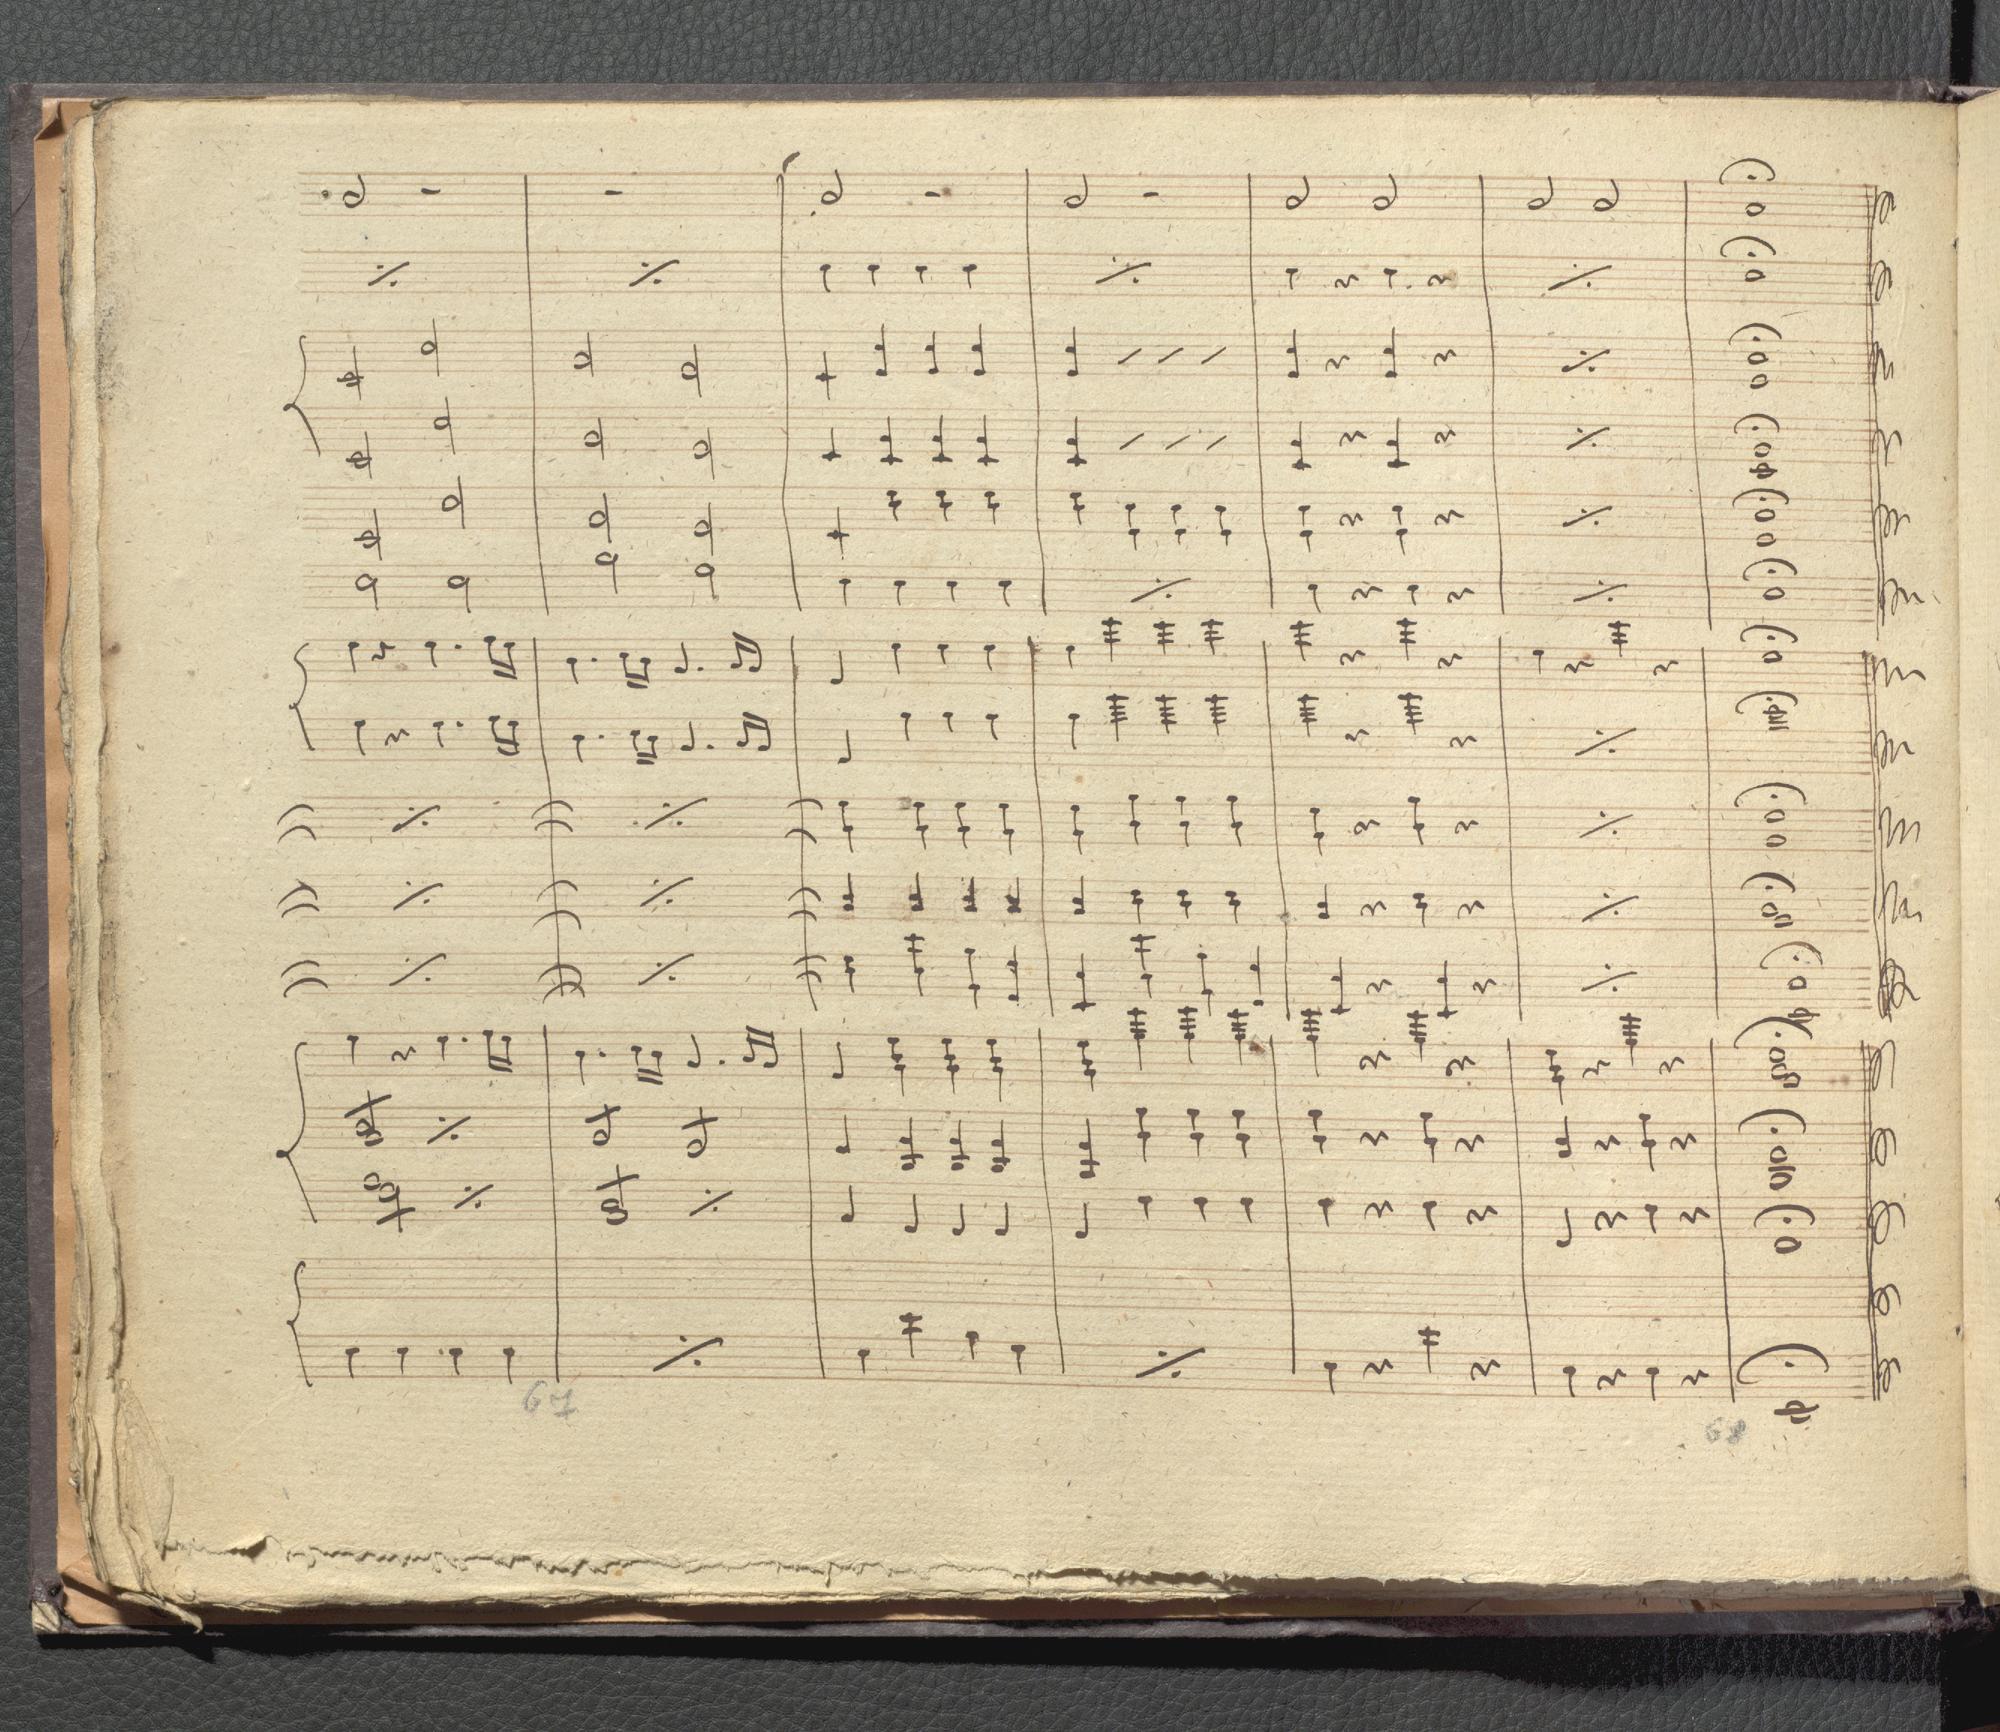 67
68